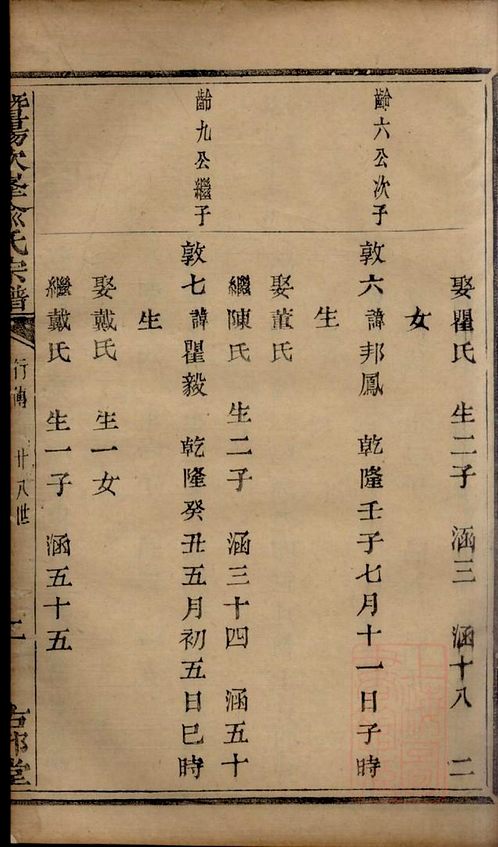 娶瞿氏 生二子 涵三 涵十八 二
女
齡六公次子
敦六 諱邦鳳 乾隆壬子七月十一日子時
生
娶董氏
繼陳氏 生二子 涵三十四 涵五十
齡九公繼子
敦七 諱瞿毅 乾隆癸丑五月初五日巳時
生
娶戴氏 生一女
繼戴氏 生一子 涵五十五
暨陽次峯俞氏宗譜
行傳 廿八世